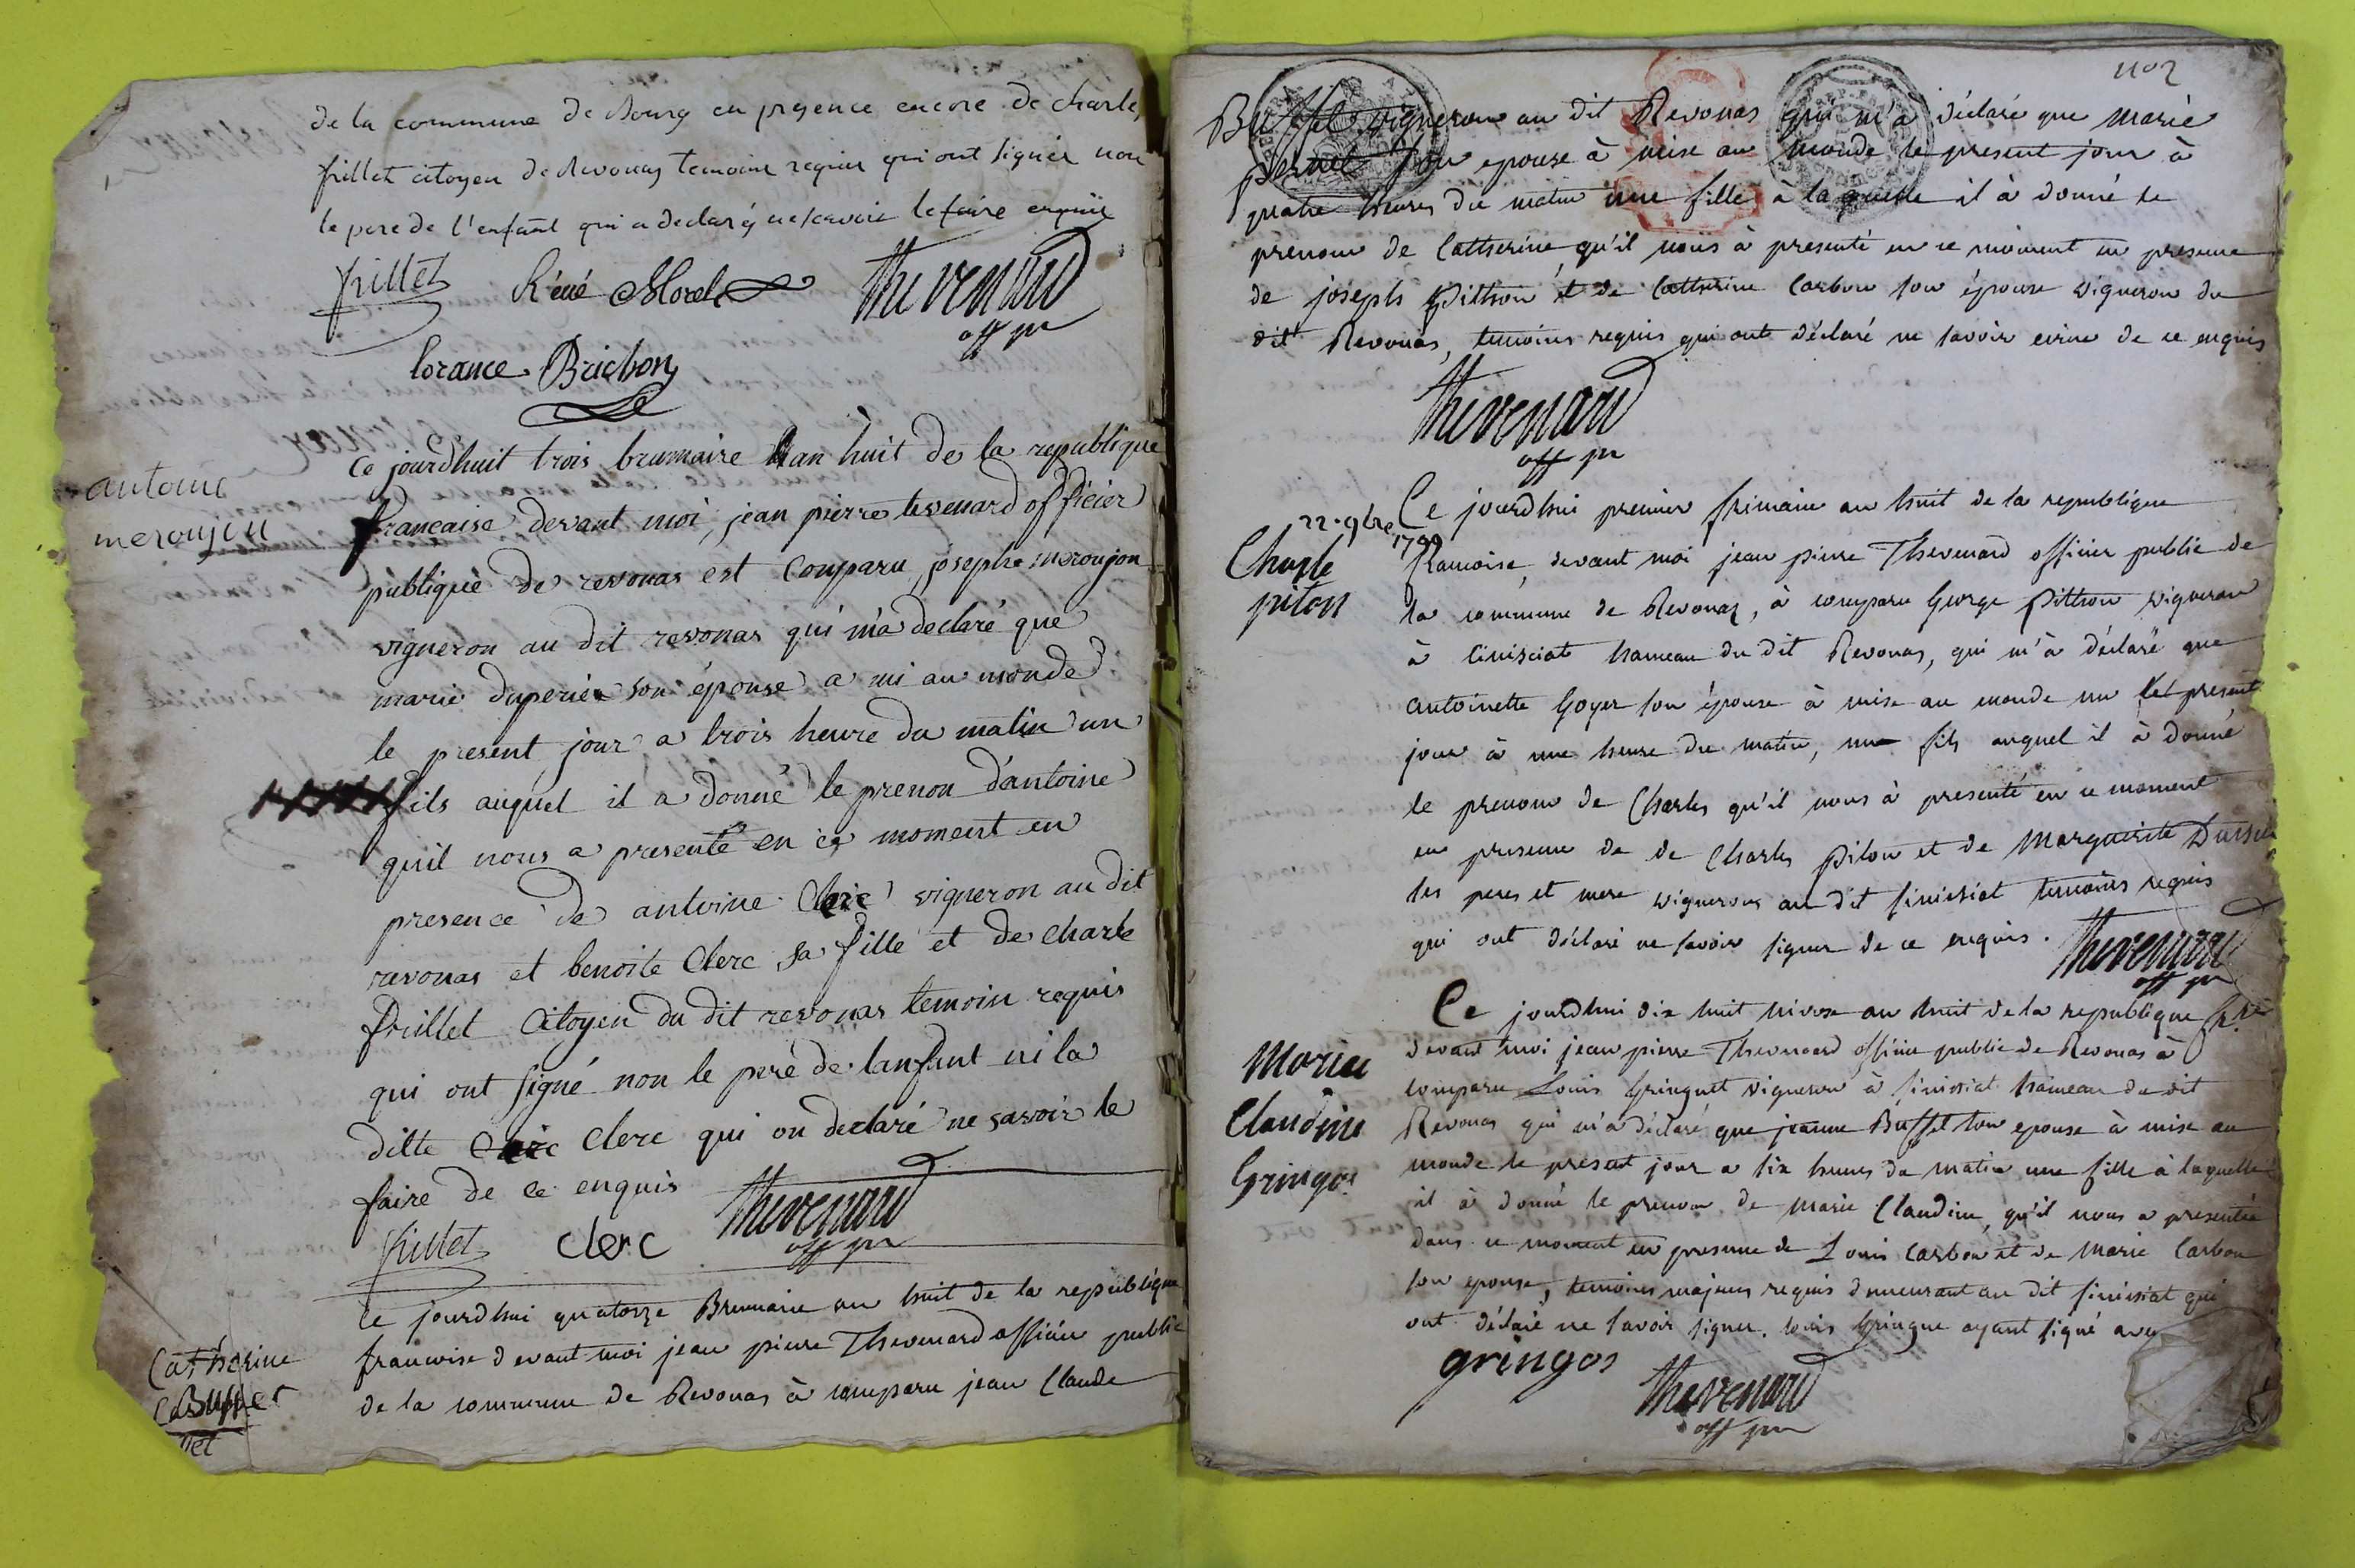 de la commune de Bourg en presence encore de charle
frillet citoyen de Revonas temoins requis qui ont signés non
le pere de l'enfant qui a declaré ne scavoir le faire enquis
frillet Réné Morel thevenard
off pu
lorance Brichon
antoine
meroujon
Ce jourdhuit trois brumaire lan huit de la republique
française devant moi, jean pierre tevenard officier
publique de revonas est Comparu, josephe meroujon
vigneron au dit revonas qui m'a declaré que
marie duperier son épouse a mi au monde
le present jour a trois heure du matin un
fils auquel il a donné le prenon d'antoine
quil nous a presenté en ce moment en
presence de antoine Clerc vigneron au dit
revonas et benoite Clerc sa fille et de charle
frillet Citoyen du dit revonas temoin requis
qui ont signé non le peré de lanfant ni la
ditte Clerc qui on declaré ne savoir le
faire de ce enquis
frillet clerc thevenard
off pu
Catherine
Buffet
Ce jourdhui quatorze Brumaire an huit de la republique
francoise devant moi jean pierre Thevenard officier public
de la commune de Revonas à comparu jean Claude
1102
Buffet vigneron au dit Revonas qui m'a déclaré que Marie
pernet son epouse à mise au monde le present jour à
quatre heures du matin une fille à la quelle il à donné le
prenom de Catherine qu'il nous à presenté en ce moment en presence
de joseph Pithion et de Catherine Carbon son épouse vigneron du
dit Revonas, temoins requis qui ont déclaré ne savoir ecrire de ce enquis
thevenard
off pu
22 9bre
1799
Charle
piton
Ce jourdhui premier frimaire an huit de la republique
francoise, devant moi jean pierre Thevenard officier public de
la commune de Revonas, à comparu George Pithion vigneron
à Sinissiat hameau du dit Revonas, qui m'à déclaré que
antoinette Goyer son épouse à mise au monde un le present
jour à une heure du matin, un fils auquel il à donné
le prenom de Charles qu'il nous à presenté en ce moment
en presence de de Charles Piton et de Marguerite
ses peres et mere vignerons au dit sinissiat temoins requis
qui ont déclaré ne savoir signer de ce enquis. thevenard
off pu
Marie
Claudine
Gringos
Ce jourdhui dix huit nivose an huit de la republique
devant moi jean pierre Thevenard officier public de Revonas à
comparu Louis Gringuet vigneron à sinissiat hameau du dit
Revonas qui m'a déclaré que jeanne Buffet son epouse à mise au
monde le present jour a six heures du matin une fille à laquelle
il à donné le prenom de Marie Claudine, qu'il nous a presentée
dans ce moment en presence de Louis Carbon et de Marie Carbon
son epouse, temoins majeurs requis demeurant au dit sinissiat qui
ont déclaré ne savoir signer. louis Gringue ayant signé avec
gringos thevenard
off pu